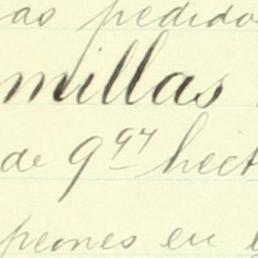 as pedido
millas
de 9⁹⁷ hect
peones en